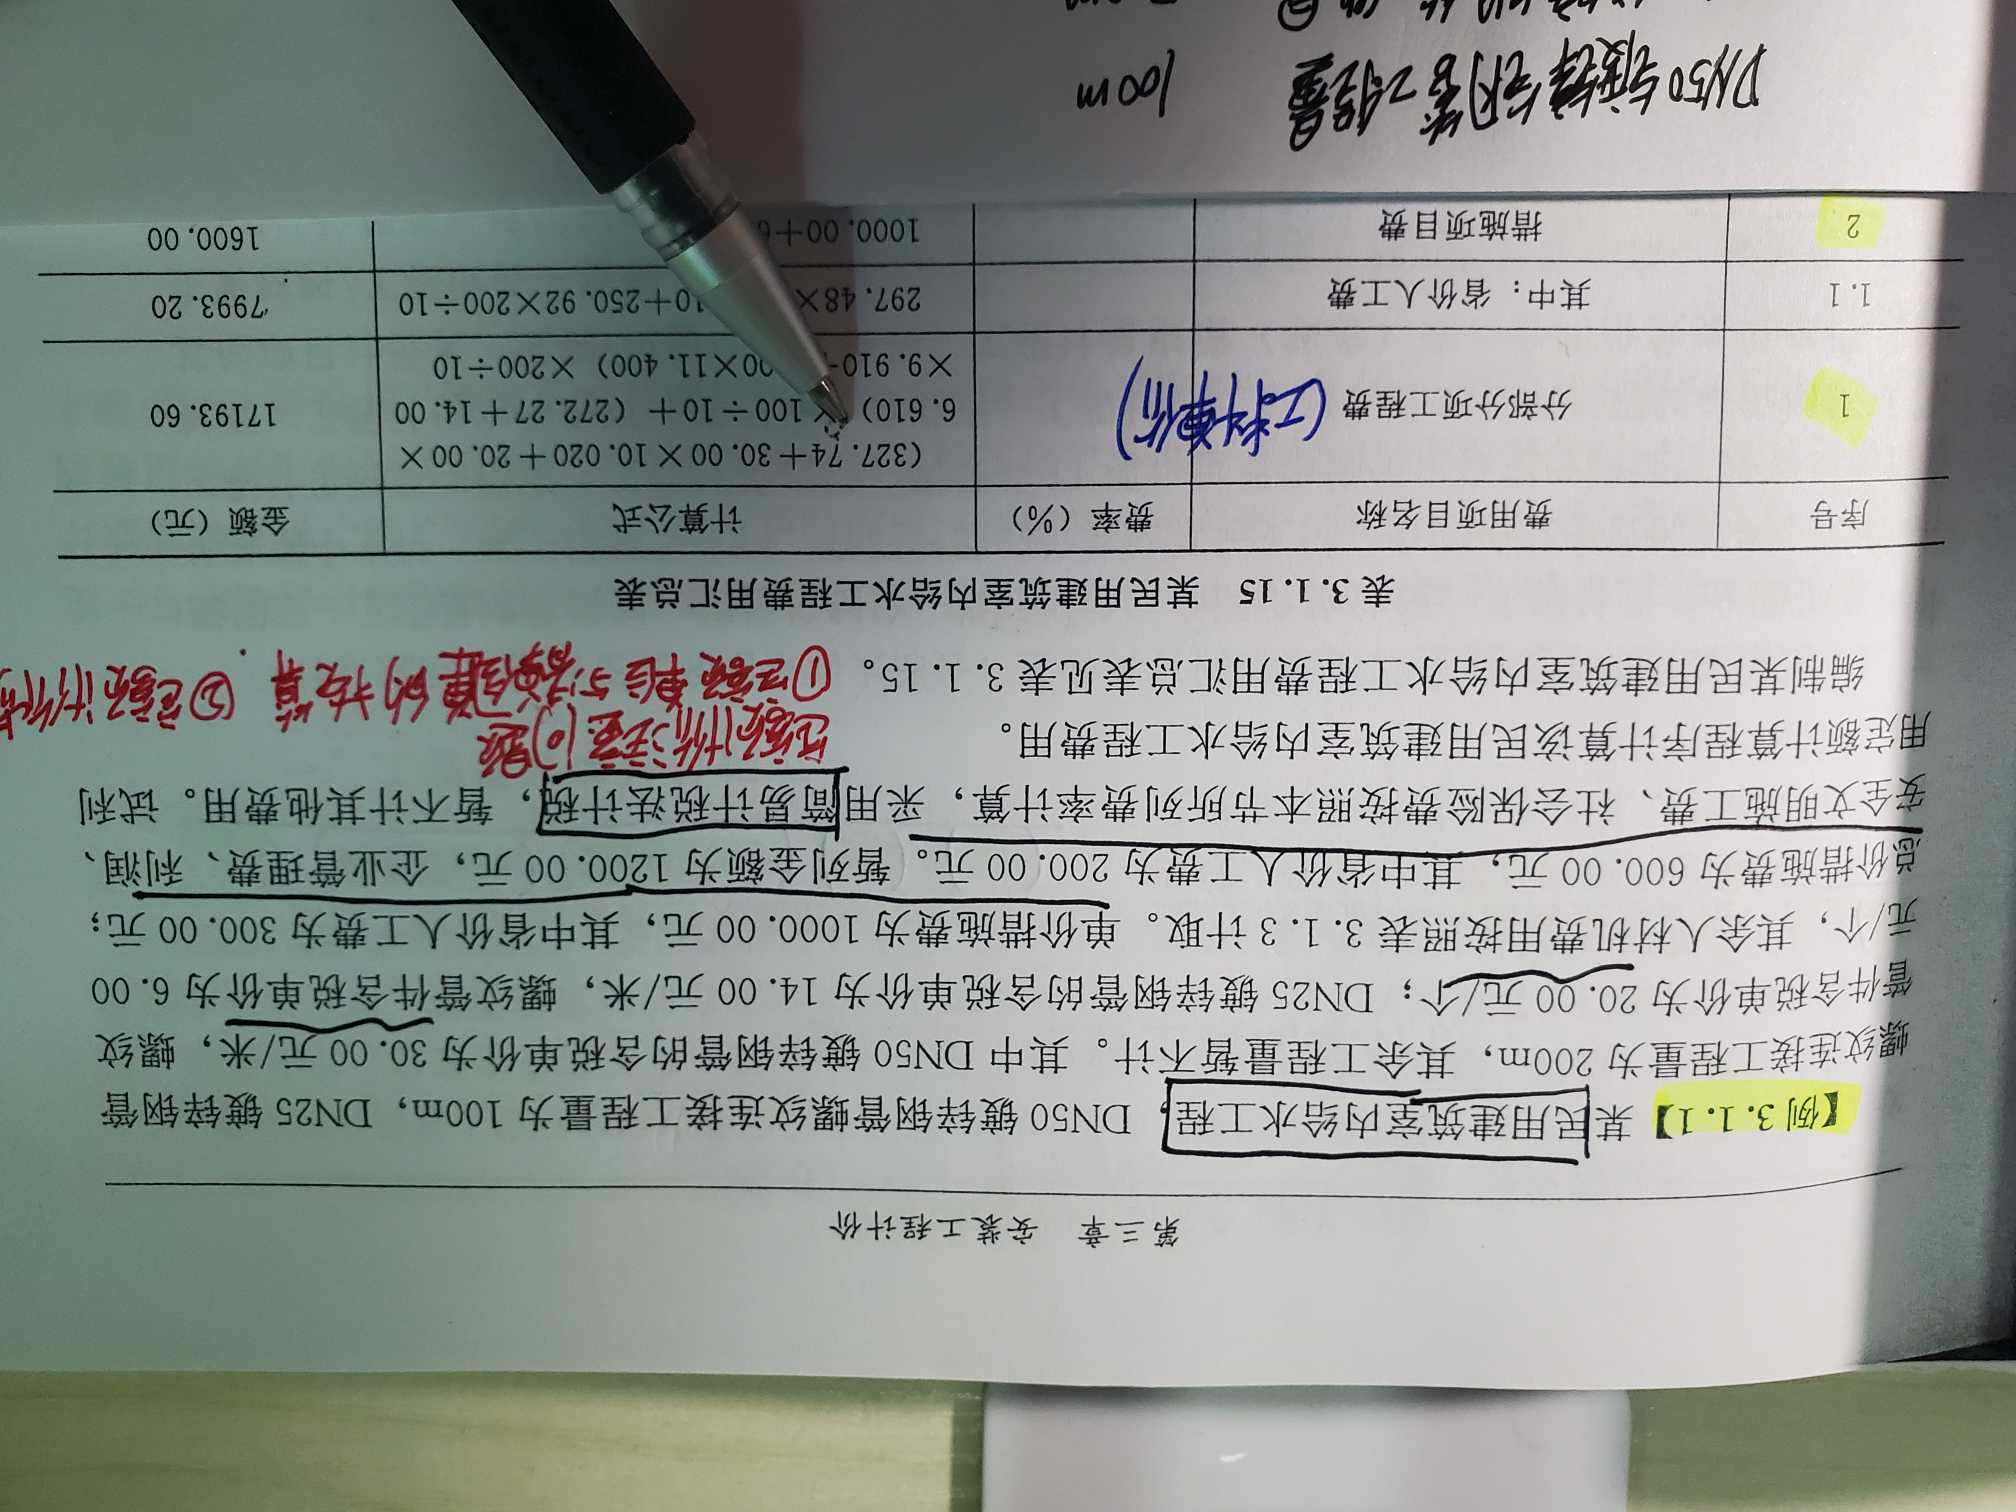 第三章 安装工程计价
【例 3.1.1】 某民用建筑室内给水工程，DN50 镀锌钢管螺纹连接工程量为 100m，DN25 镀锌钢管
螺纹连接工程量为 200m，其余工程量暂不计。其中 DN50 镀锌钢管的含税单价为 30.00 元/米，螺纹
管件含税单价为 20.00 元/个；DN25 镀锌钢管的含税单价为 14.00 元/米，螺纹管件含税单价为 6.00
元/个，其余人材机费用按照表 3.1.3 计取。单价措施费为 1000.00 元，其中省价人工费为 300.00 元；
总价措施费为 600.00 元，其中省价人工费为 200.00 元。暂列金额为 1200.00 元，企业管理费、利润、
安全文明施工费、社会保险费按照本节所列费率计算，采用简易计税法计税，暂不计其他费用。试利
用定额计算程序计算该民用建筑室内给水工程费用。
定额计价注意问题
编制某民用建筑室内给水工程费用汇总表见表 3.1.15。
①定额单位与清单的换算 ②定额计价
表 3.1.15 某民用建筑室内给水工程费用汇总表
序号 费用项目名称 费率（%） 计算公式 金额（元）
1 分部分项工程费 （工料单价） （327.74＋30.00×10.020＋20.00×
6.610）×100÷10＋（272.27＋14.00
×9.910 00×11.400）×200÷10 17193.60
1.1 其中：省价人工费 297.48× 10＋250.92×200÷10 7993.20
2 措施项目费 1000.00＋6 1600.00
DN50 镀锌钢管工程量 100m